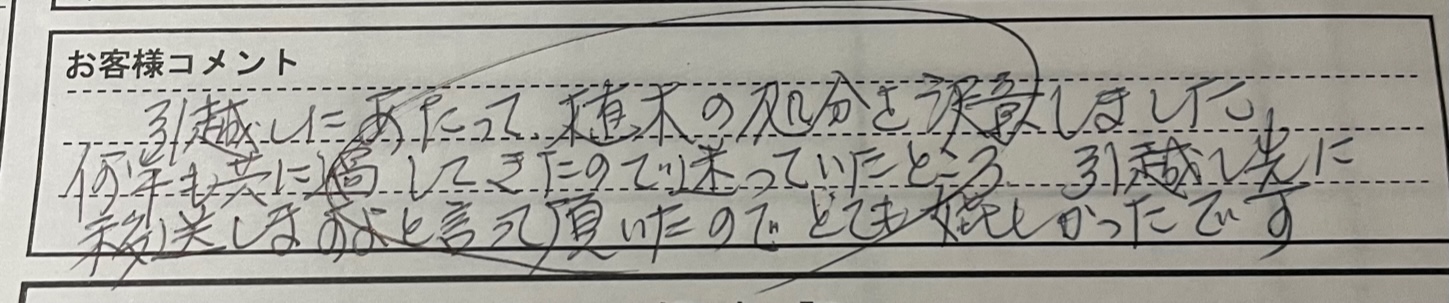 お客様コメント
引越しにあたって、植木の処分を決意しました。
何年も共に過してきたので迷っていたところ 引越し先に
移送しますよと言って頂いたのでとても嬉しかったです